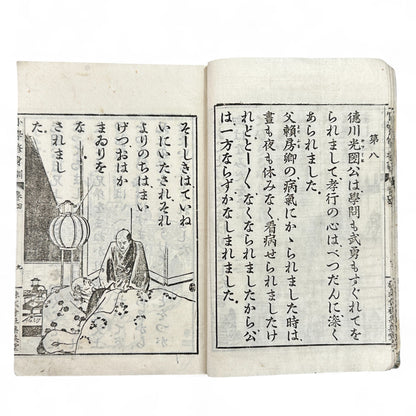 第八
德川光圀公は學問も武勇もすぐれてを
られまして孝行の心はべつだんに深く
あられました。
父賴房卿の病氣にかゝられました時は
晝も夜も休みなく看病せられましたけ
れどとーくなくなられましたから公
は一方ならずかなしまれました。
そーしきはていね
いにいたされそれ
よりのちはまい
げつおはか
まゐりを
されまし
た。
小學修身訓 卷四
九